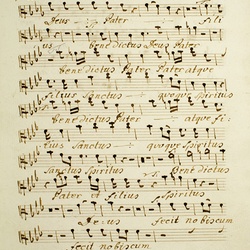 Deus Pater Fili
us benedictus Deus Pater
benedictus Pater Pater atque
Filius Sanctus quoque Spiritus
benedictus Pater atque Fi:
lius Sanctus quoque Spiritus
Sanctus Spiritus Benedictus
Pater Filius Spiritus
Deus fecit nobiscum
fecit nobiscum